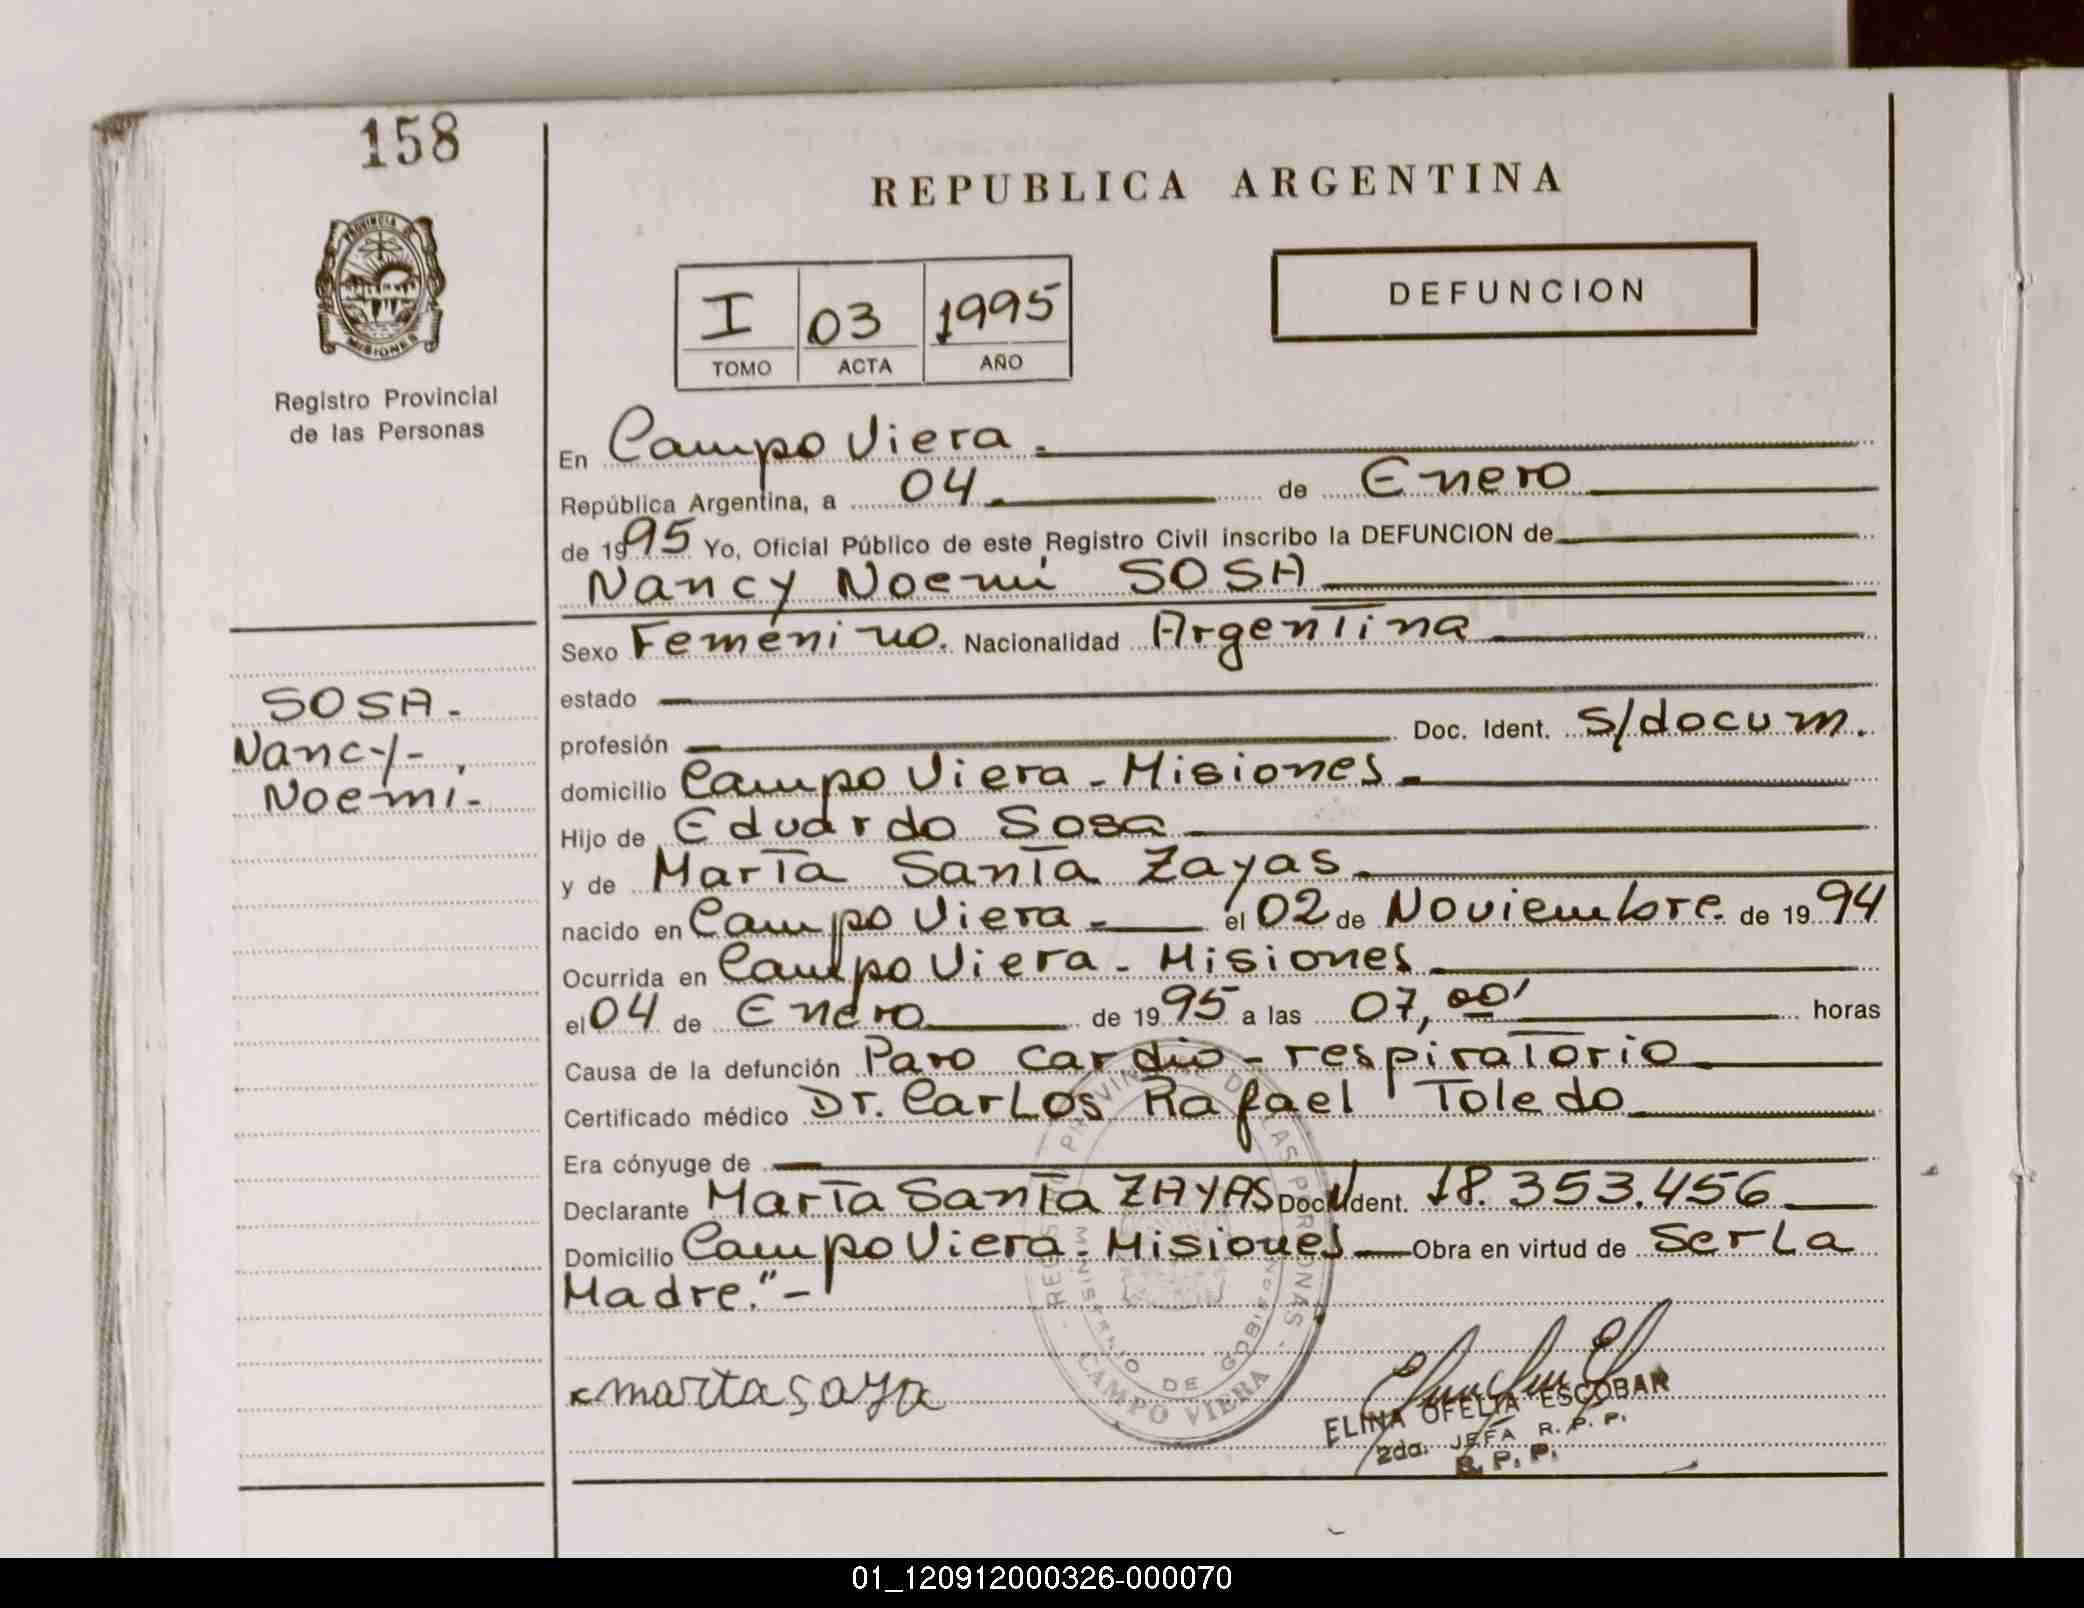 158
REPUBLICA ARGENTINA
PROVINCIA DE
MISIONES
Registro Provincial
de las Personas
DEFUNCION
I 03 1995
TOMO ACTA AÑO
En Campo Viera.
República Argentina, a 04 de Enero
de 1995 Yo, Oficial Público de este Registro Civil inscribo la DEFUNCION de
Nancy Noemí SOSA
Sexo Femenino. Nacionalidad Argentina
estado
profesión Doc. Ident. S/docum.
domicilio Campo Viera - Misiones.
Hijo de Eduardo Sosa
y de Marta Santa Zayas.
nacido en Campo Viera. el 02 de Noviembre. de 1994
Ocurrida en Campo Viera - Misiones
el 04 de Enero de 1995 a las 07,00' horas
Causa de la defunción Paro cardio-respiratorio
Certificado médico Dr. Carlos Rafael Toledo
Era cónyuge de
Declarante Marta Santa ZAYAS Doc. Ident. 18.353.456
Domicilio Campo Viera. Misiones Obra en virtud de Ser La
Madre."-
SOSA.
Nancy-
Noemí-
REGISTRO PROVINCIAL DE LAS PERSONAS
MINISTERIO DE GOBIERNO
CAMPO VIERA
marta saya
ELINA OFELIA ESCOBAR
2da. JEFA R. P. P.
R. P. P.
01_120912000326-000070